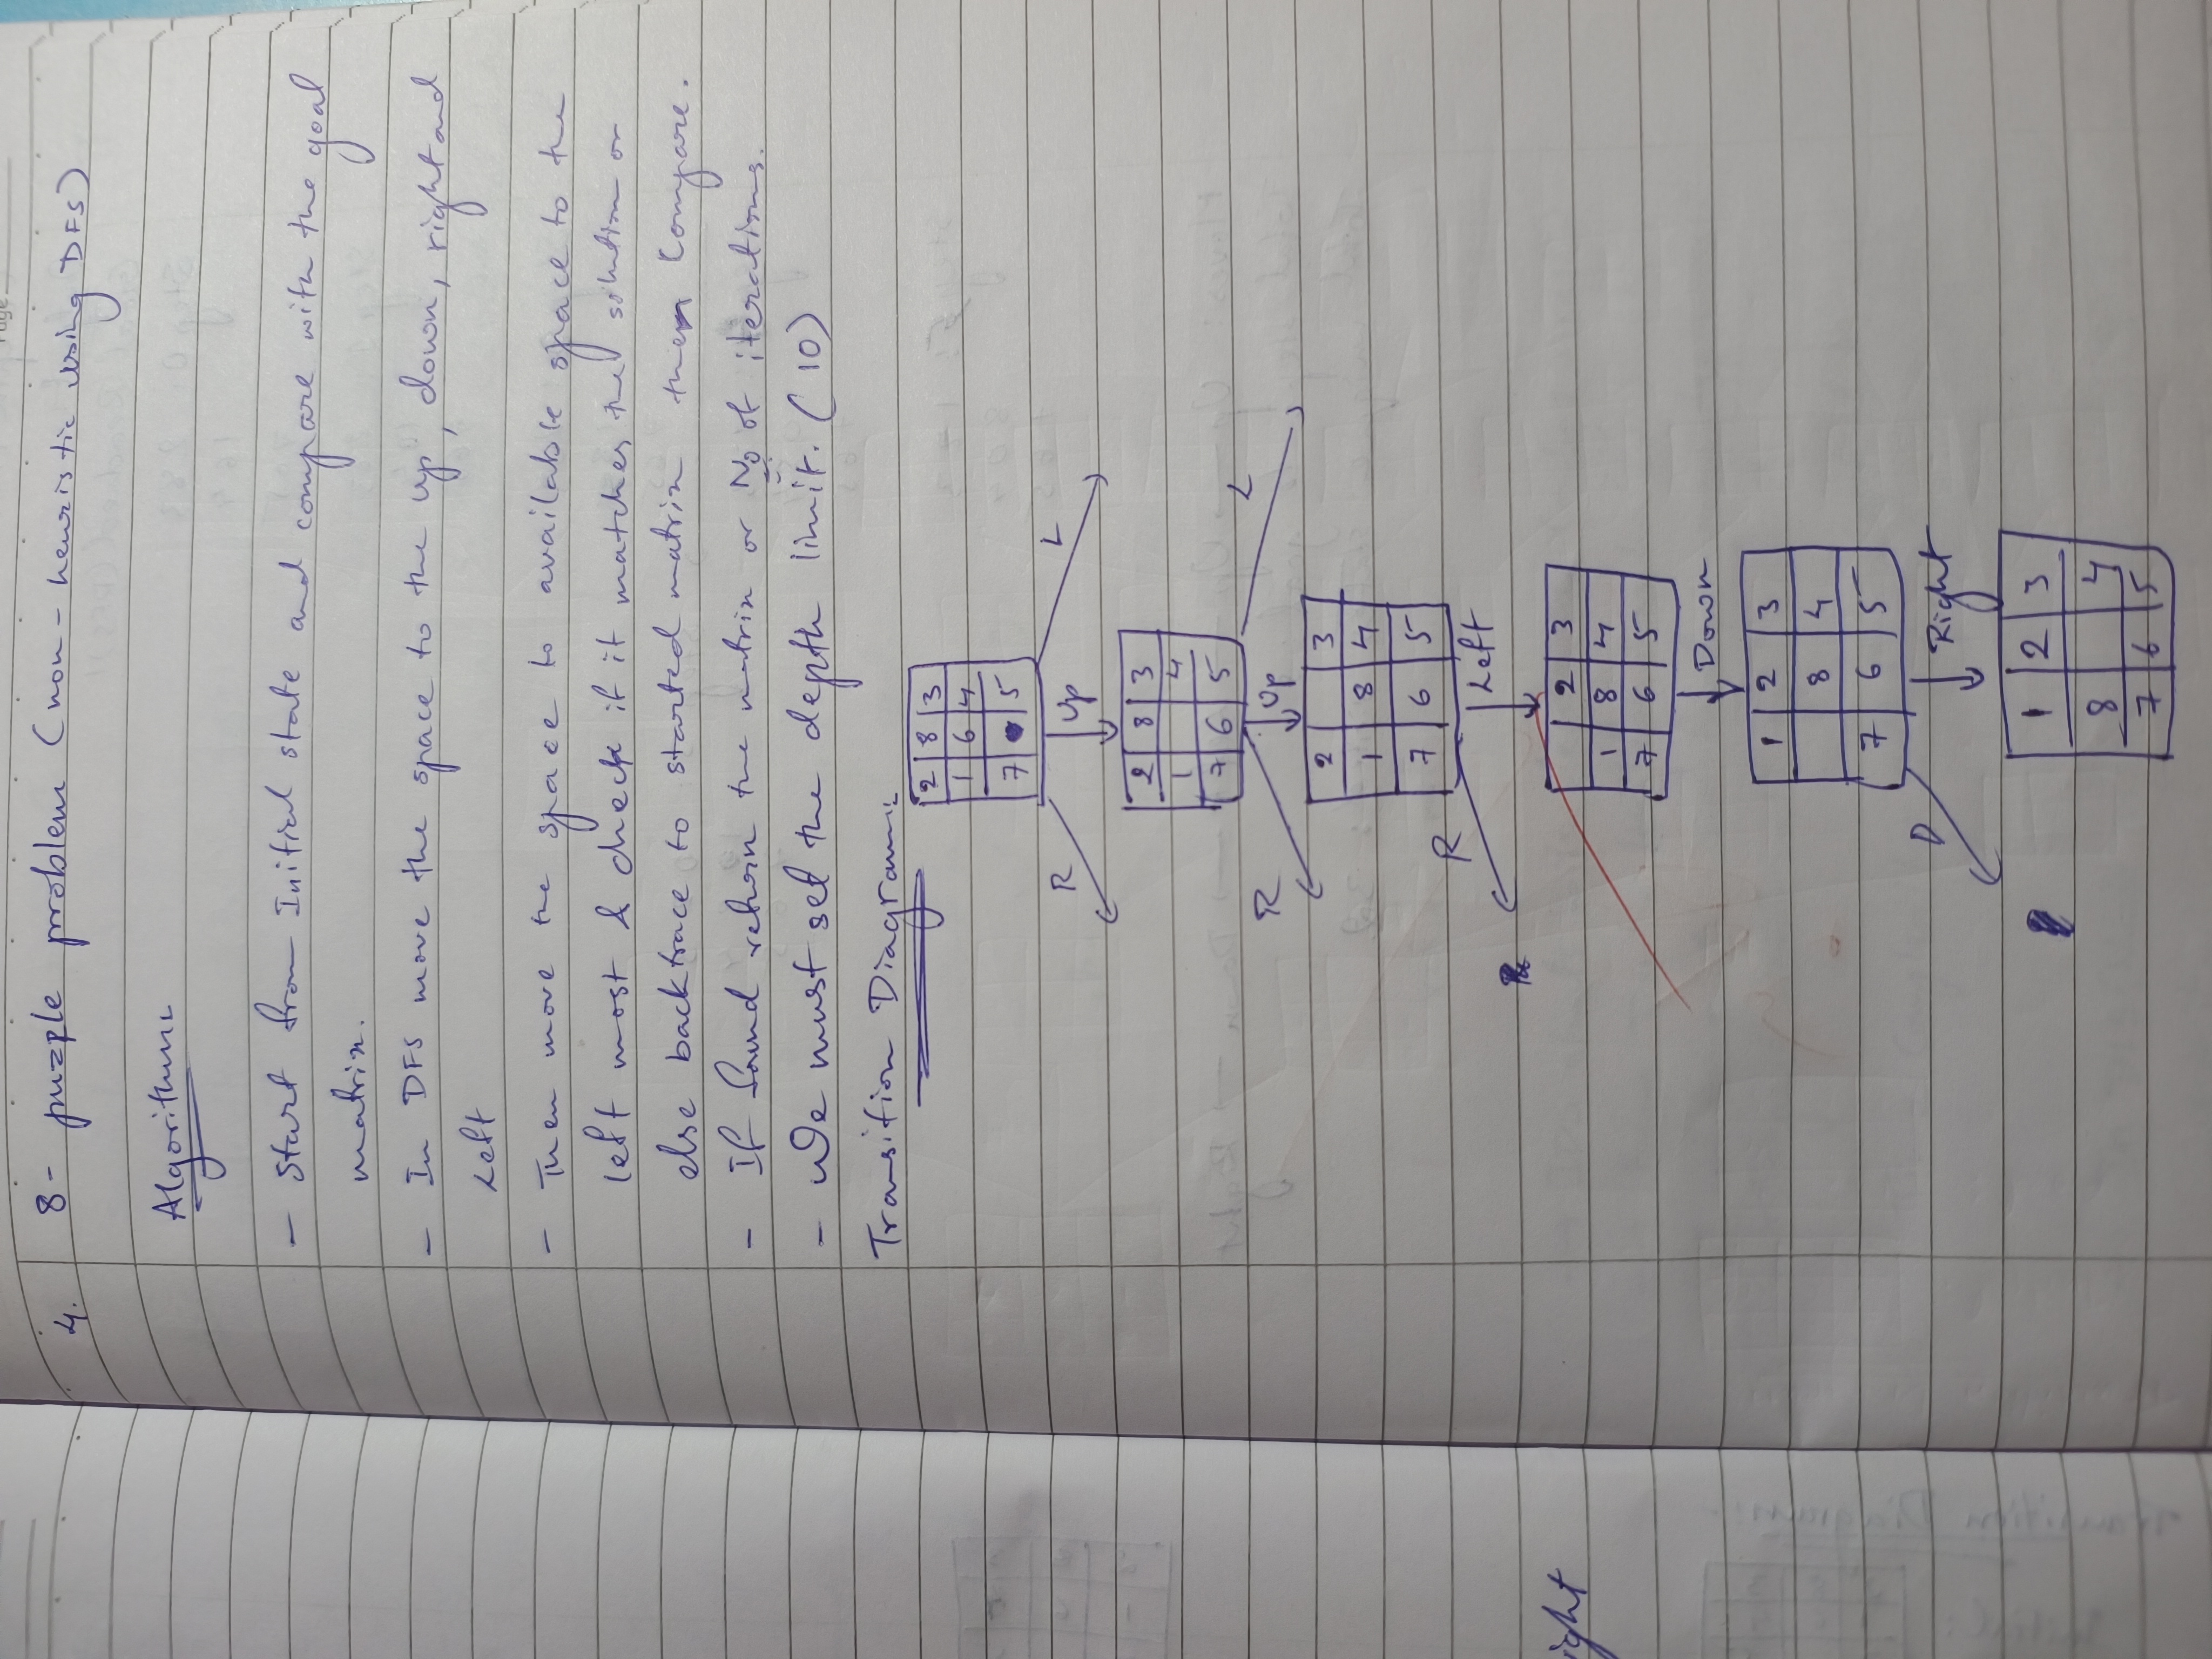 Page
4.
8- puzzle problem (non-heuristic using DFS)
Algorithm:
- Start from Initial state and compare with the goal
matrix.
- In DFS move the space to the up, down, right and
Left
- Then move the space to available space to the
left most & check if it matches the solution or
else backtrace to started matrix then Compare.
- If found return the matrix or No of iterations.
- We must set the depth limit. (10)
Transition Diagram:
2 8 3
1 6 4
7 5
R Up L
2 8 3
1 4
7 6 5
R Up L
2 3
1 8 4
7 6 5
R Left
2 3
1 8 4
7 6 5
ight
Down
1 2 3
8 4
7 6 5
D Right
1 2 3
8 4
7 6 5